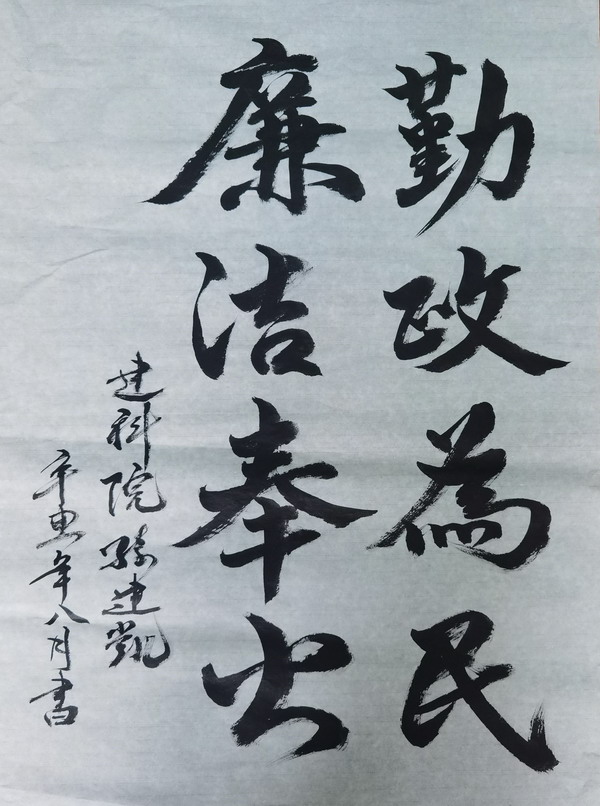 勤政為民
廉洁奉公
建科院孙建凯
辛丑年八月书